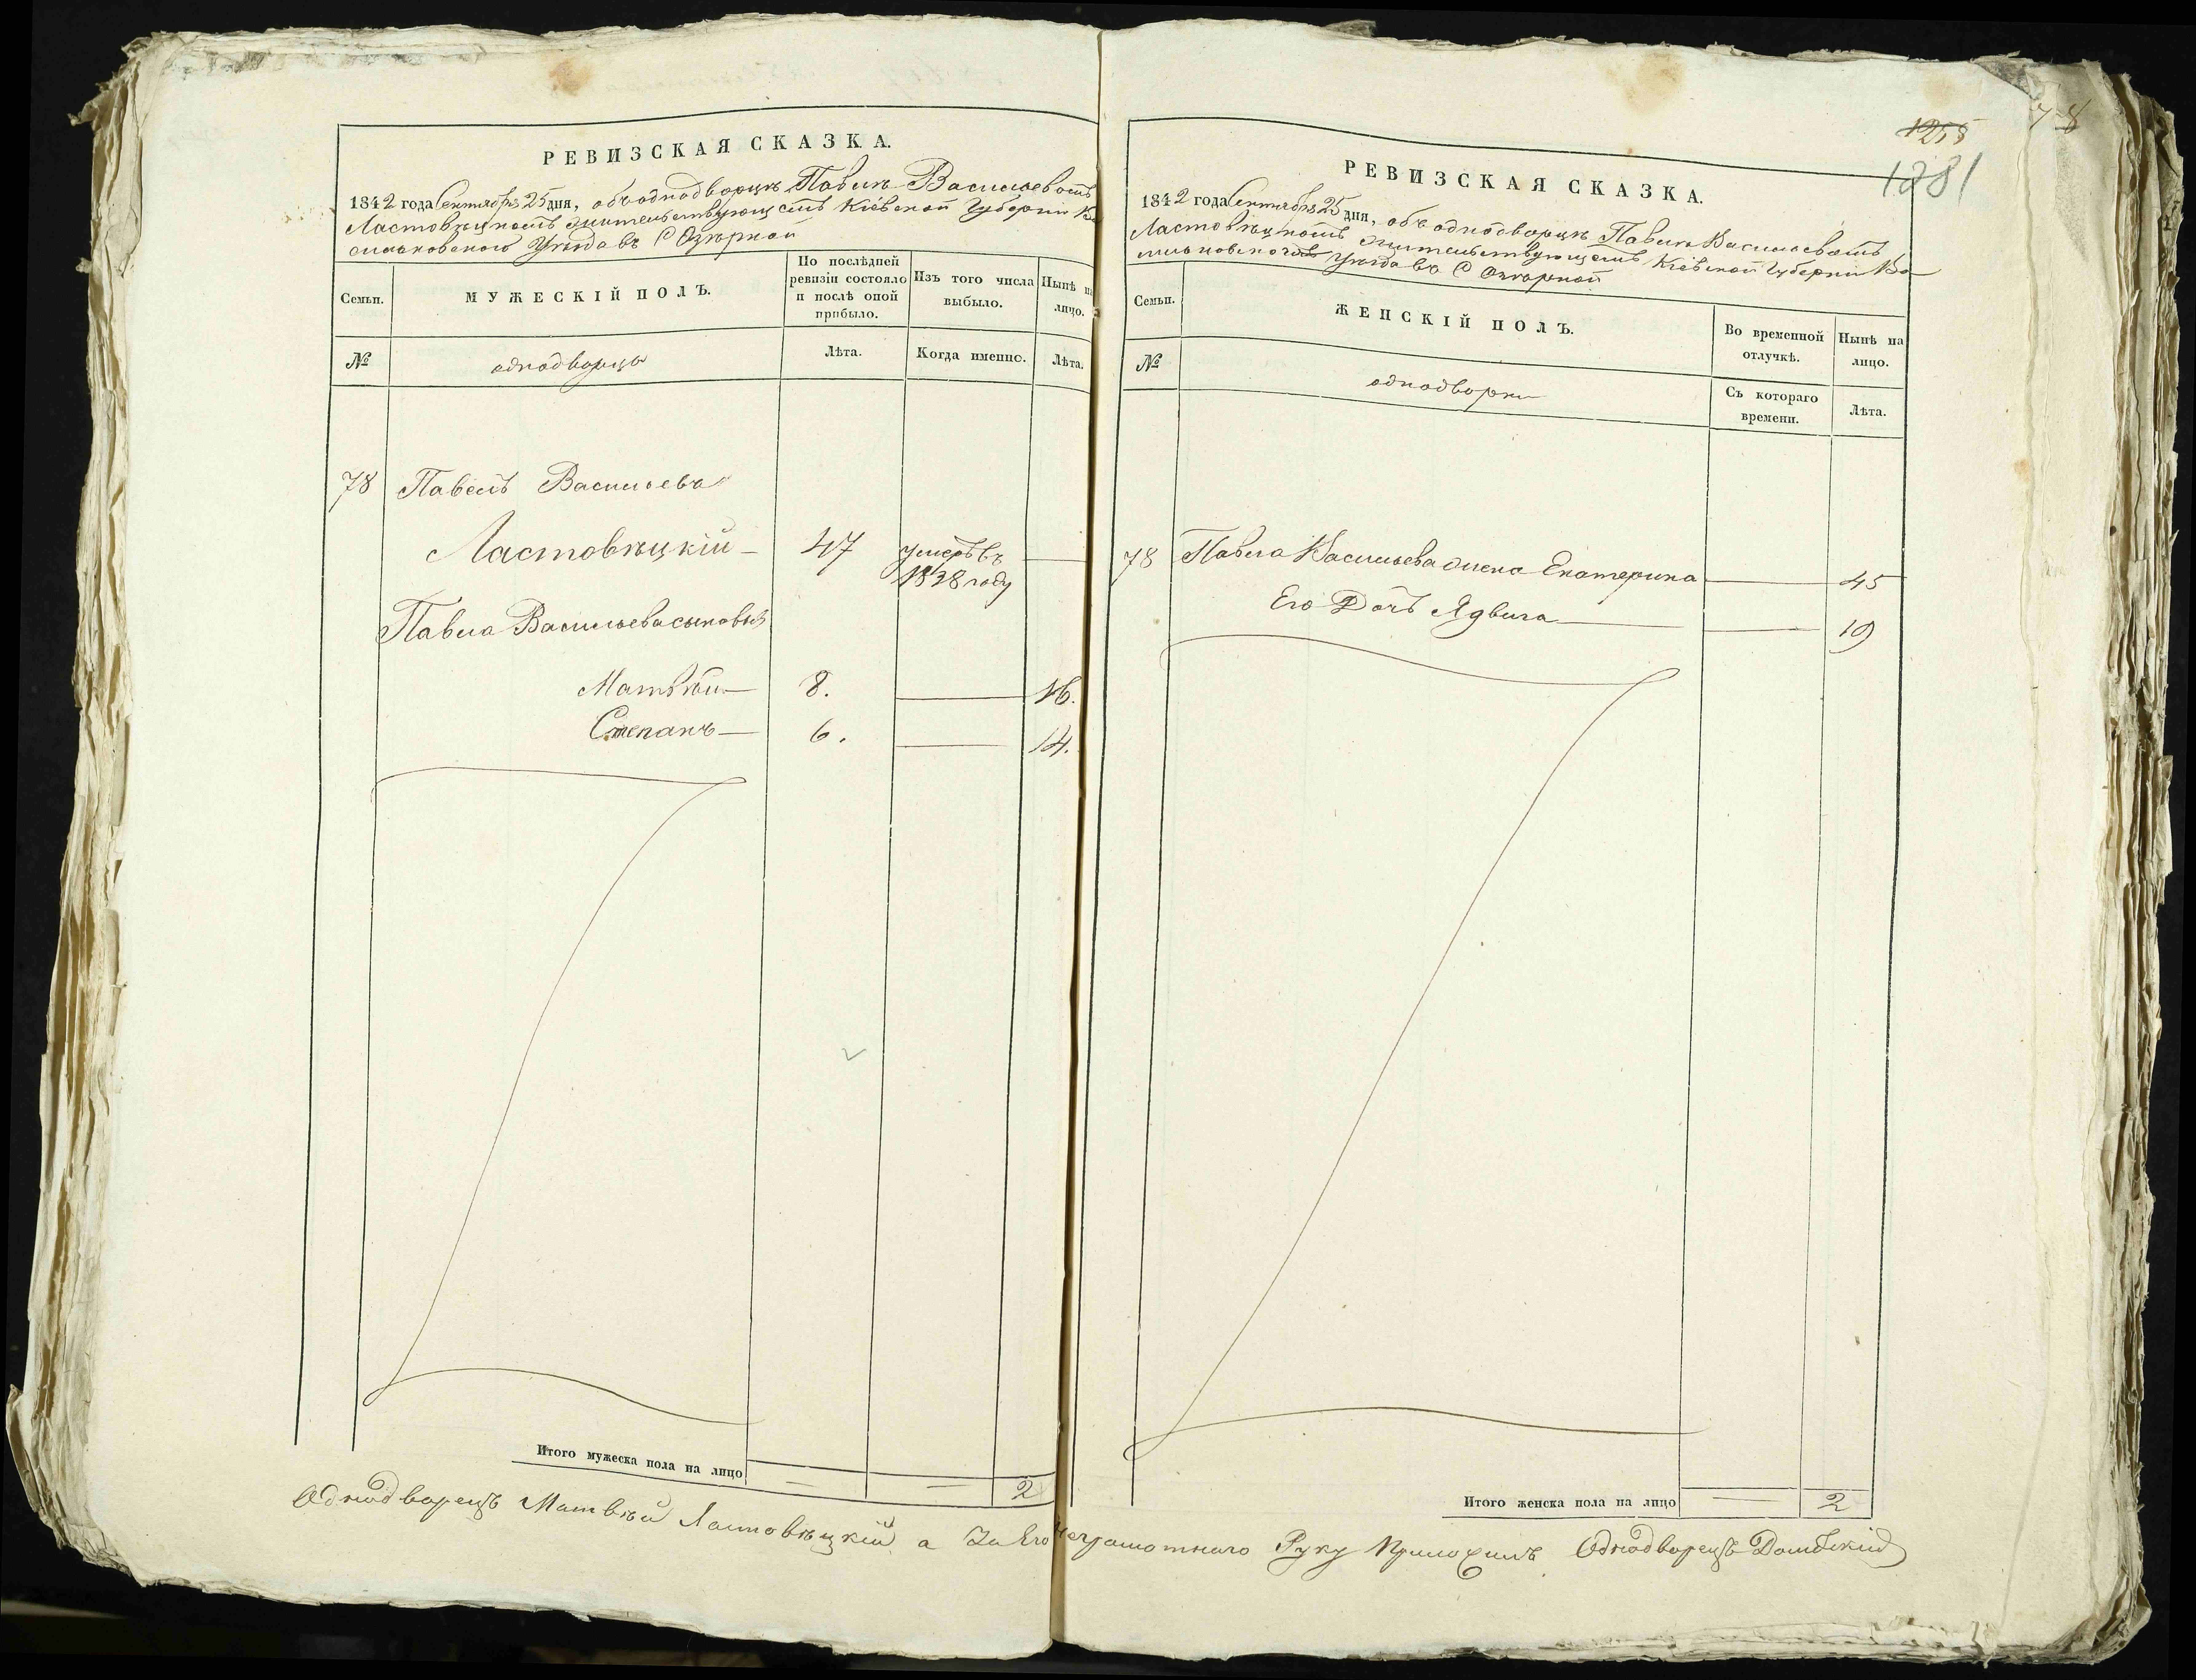 РЕВИЗСКАЯ СКАЗКА.
1842 года Сентября 25 дня, объ однодворцѣ Павлѣ Васильевомъ
Ластовѣцкомъ жительствующемъ Кіевской Губерніи Ва
сильковскаго Уѣзда въ С Озѣрной
Семьи.
МУЖЕСКІЙ ПОЛЪ.
По послѣдней
ревизіи состояло
и послѣ оной
прибыло.
Изъ того числа
выбыло.
Нынѣ на
лицо.
№
однодворцы
Лѣта.
Когда именно.
Лѣта.
78 Павелъ Васильевъ
Ластовѣцкій 47 умеръ въ
1838 году
Павла Васильева сыновья
Матвѣй 8. 16.
Степанъ 6. 14.
Итого мужеска пола на лицо 2
78
1255
1281
РЕВИЗСКАЯ СКАЗКА.
1842 года Сентября 25 дня, объ однодворцѣ Павлѣ Васильевомъ
Ластовѣцкомъ жительствующемъ Кіевской Губерніи Ва
сильковскомъ Уѣзда въ С Озѣрной
Семьи.
ЖЕНСКІЙ ПОЛЪ.
Во временной
отлучкѣ.
Нынѣ на
лицо.
№
однодворки
Съ котораго
времени.
Лѣта.
78 Павла Васильева жена Екатерина 45
Его Дочь Ядвига 19
Итого женска пола на лицо 2
Однодворецъ Матвѣй Ластовѣцкій а За Его неграмотнаго Руку Приложилъ Однодворецъ